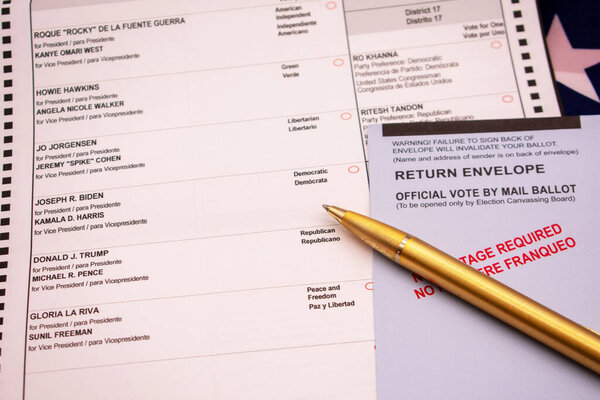 ROQUE "ROCKY" DE LA FUENTE GUERRA
for President / para Presidente
KANYE OMARI WEST
for Vice President / para Vicepresidente
American
Independent
Independiente
Americano
HOWIE HAWKINS
for President / para Presidente
ANGELA NICOLE WALKER
for Vice President / para Vicepresidente
Green
Verde
JO JORGENSEN
for President / para Presidente
JEREMY "SPIKE" COHEN
for Vice President / para Vicepresidente
Libertarian
Libertario
JOSEPH R. BIDEN
for President / para Presidente
KAMALA D. HARRIS
for Vice President / para Vicepresidente
Democratic
Demócrata
DONALD J. TRUMP
for President / para Presidente
MICHAEL R. PENCE
for Vice President / para Vicepresidente
Republican
Republicano
GLORIA LA RIVA
for President / para Presidente
SUNIL FREEMAN
for Vice President / para Vicepresidente
Peace and
Freedom
Paz y Libertad
District 17
Distrito 17
Vote for One
Vote por Uno
RO KHANNA
Party Preference: Democratic
Preferencia de Partido: Demócrata
United States Congressman
Congresista de Estados Unidos
RITESH TANDON
Party Preference: Republican
WARNING! FAILURE TO SIGN BACK OF
ENVELOPE WILL INVALIDATE YOUR BALLOT.
(Name and address of sender is on back of envelope)
RETURN ENVELOPE
OFFICIAL VOTE BY MAIL BALLOT
(To be opened only by Election Canvassing Board)
REQUIRED
NO FRANQUEO